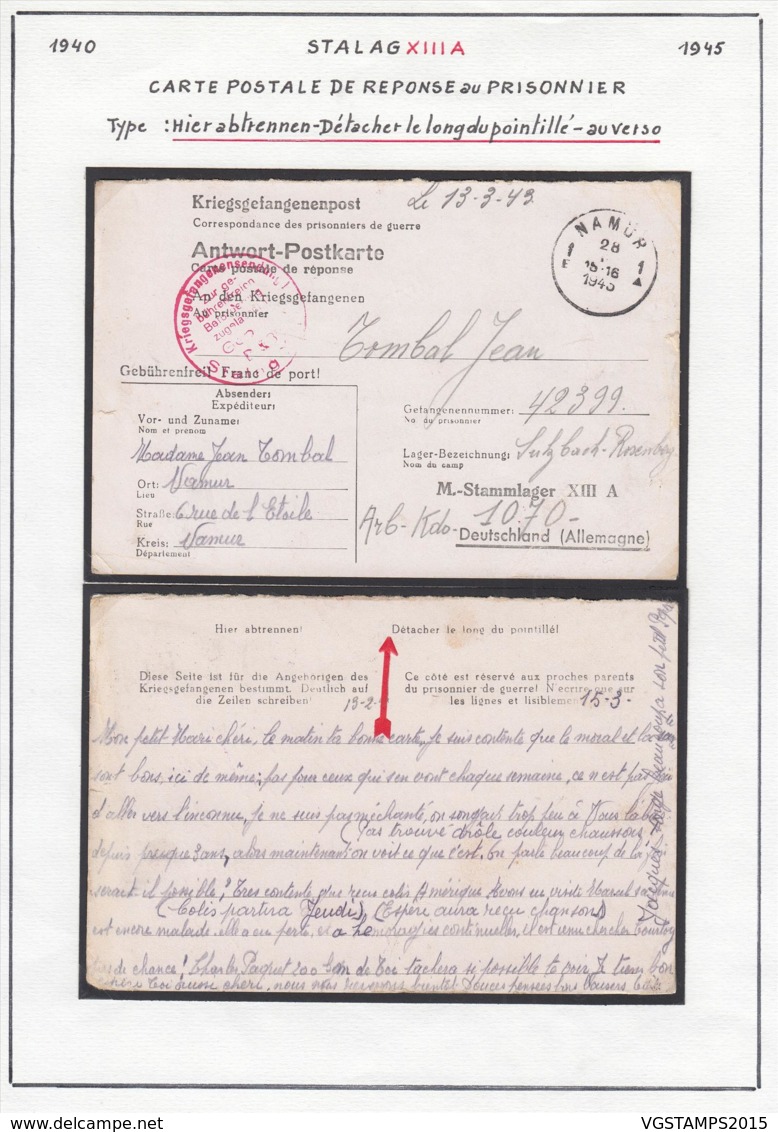 1940 STALAG XIII A 1945
CARTE POSTALE DE REPONSE au PRISONNIER
Type : Hier abtrennen - Détacher le long du pointillé - au verso
Kriegsgefangenenpost Le 13-3-43
Correspondance des prisonniers de guerre
Antwort-Postkarte
Carte postale de réponse
An den Kriegsgefangenen
Au prisonnier
NAMUR
1 28 1
E 15-16
1943
Kriegsgefangenensendung!
Stalag
Tombal Jean
Gebührenfrei! Franc de port!
Absender:
Expéditeur:
Vor- und Zuname:
Nom et prénom
Madame Jean Tombal
Ort: Namur
Lieu
Straße: 6 rue de l'Etoile
Rue
Kreis: Namur
Département
Gefangenennummer: 42399.
No du prisonnier
Lager-Bezeichnung: Sulzbach-Rosenberg
Nom du camp
M.-Stammlager XIII A
Arb-Kdo- 1070-
Deutschland (Allemagne)
Hier abtrennen! Détacher le long du pointillé!
Diese Seite ist für die Angehörigen des
Kriegsgefangenen bestimmt. Deutlich auf
die Zeilen schreiben!
Ce côté est réservé aux proches parents
du prisonnier de guerre! N'écrire que sur
les lignes et lisiblement
15-3-
Mon petit Mari chéri, ce matin ta bonne carte, je suis contente que le moral et la
sont bons, ici de même; pas pour ceux qui s'en vont chaque semaine, ce n'est pas
d'aller vers l'inconnu, je ne suis pas méchante, on songeait trop peu à Vous
(Pas trouvé drôle couleur chaussons
depuis presque 3 ans, alors maintenant on voit ce que c'est. On parle beaucoup de la
serait-il possible? Très contente que reçu colis Amérique. Avons eu visite Marcel
(Colis partira Jeudi) (Espère aura reçu chansons)
est encore malade, elle a eu perte, continuelles, il est venu chercher
de chance! Charles Paquet 200 km de toi tachera si possible te voir. Je tiens bon
chéri, nous nous reverrons bientôt. Douces pensées bons baisers
Jacques beaucoup son petit Papa
VGSTAMPS2015